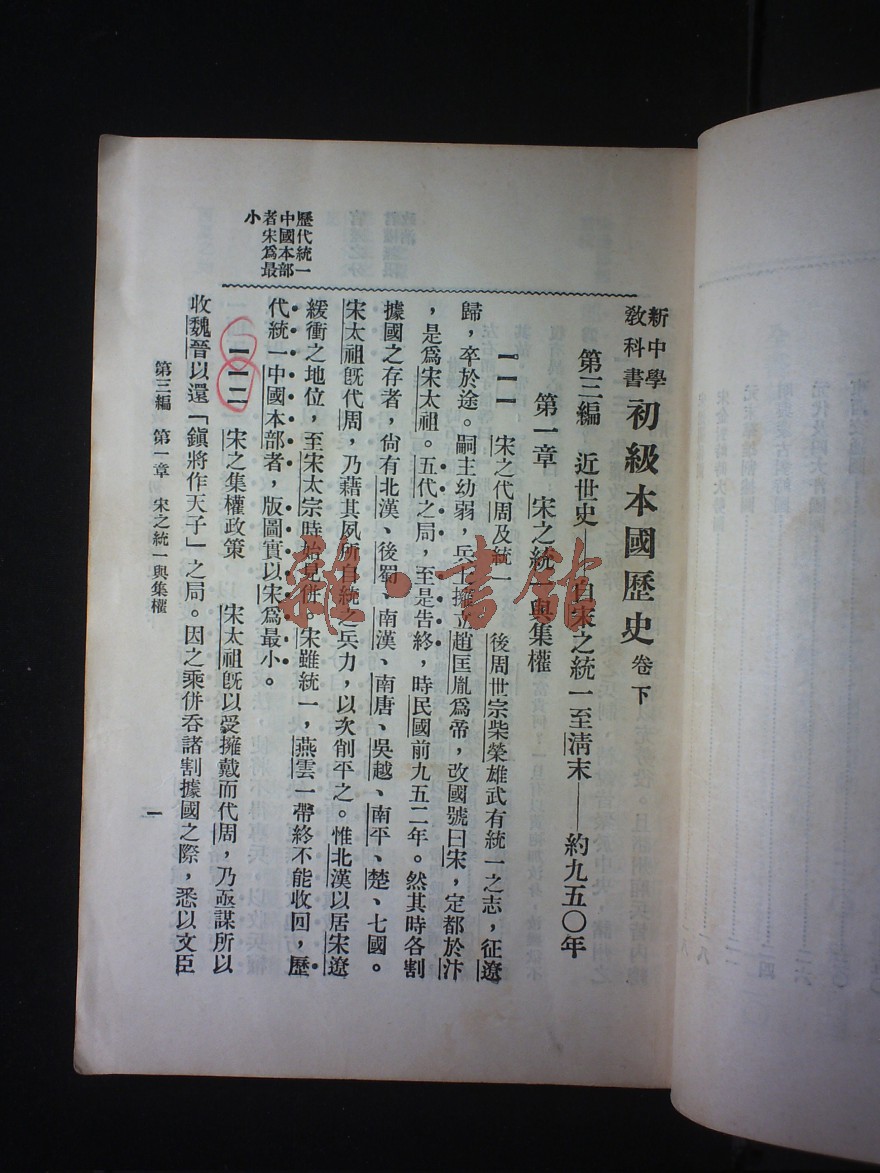 新中學
教科書
初級本國歷史 卷下
第三編 近世史——自宋之統一至淸末——約九五〇年
第一章 宋之統一與集權
一一一 宋之代周及統一 後周世宗柴榮雄武有統一之志，征遼
歸，卒於途。嗣主幼弱，兵士擁立趙匡胤爲帝，改國號曰宋，定都於汴
，是爲宋太祖。五代之局，至是告終，時民國前九五二年。然其時各割
據國之存者，尙有北漢、後蜀、南漢、南唐、吳越、南平、楚、七國。
宋太祖旣代周，乃藉其夙所自統之兵力，以次削平之。惟北漢以居宋遼
緩衝之地位，至宋太宗時始見併。宋雖統一，燕雲一帶終不能收回，歷
代統一中國本部者，版圖實以宋爲最小。
歷代統一
中國本部
者宋爲最
小
一一二 宋之集權政策 宋太祖旣以受擁戴而代周，乃亟謀所以
收魏晉以還「鎭將作天子」之局。因之乘併吞諸割據國之際，悉以文臣
第三編 第一章 宋之統一與集權
一
雜·書館